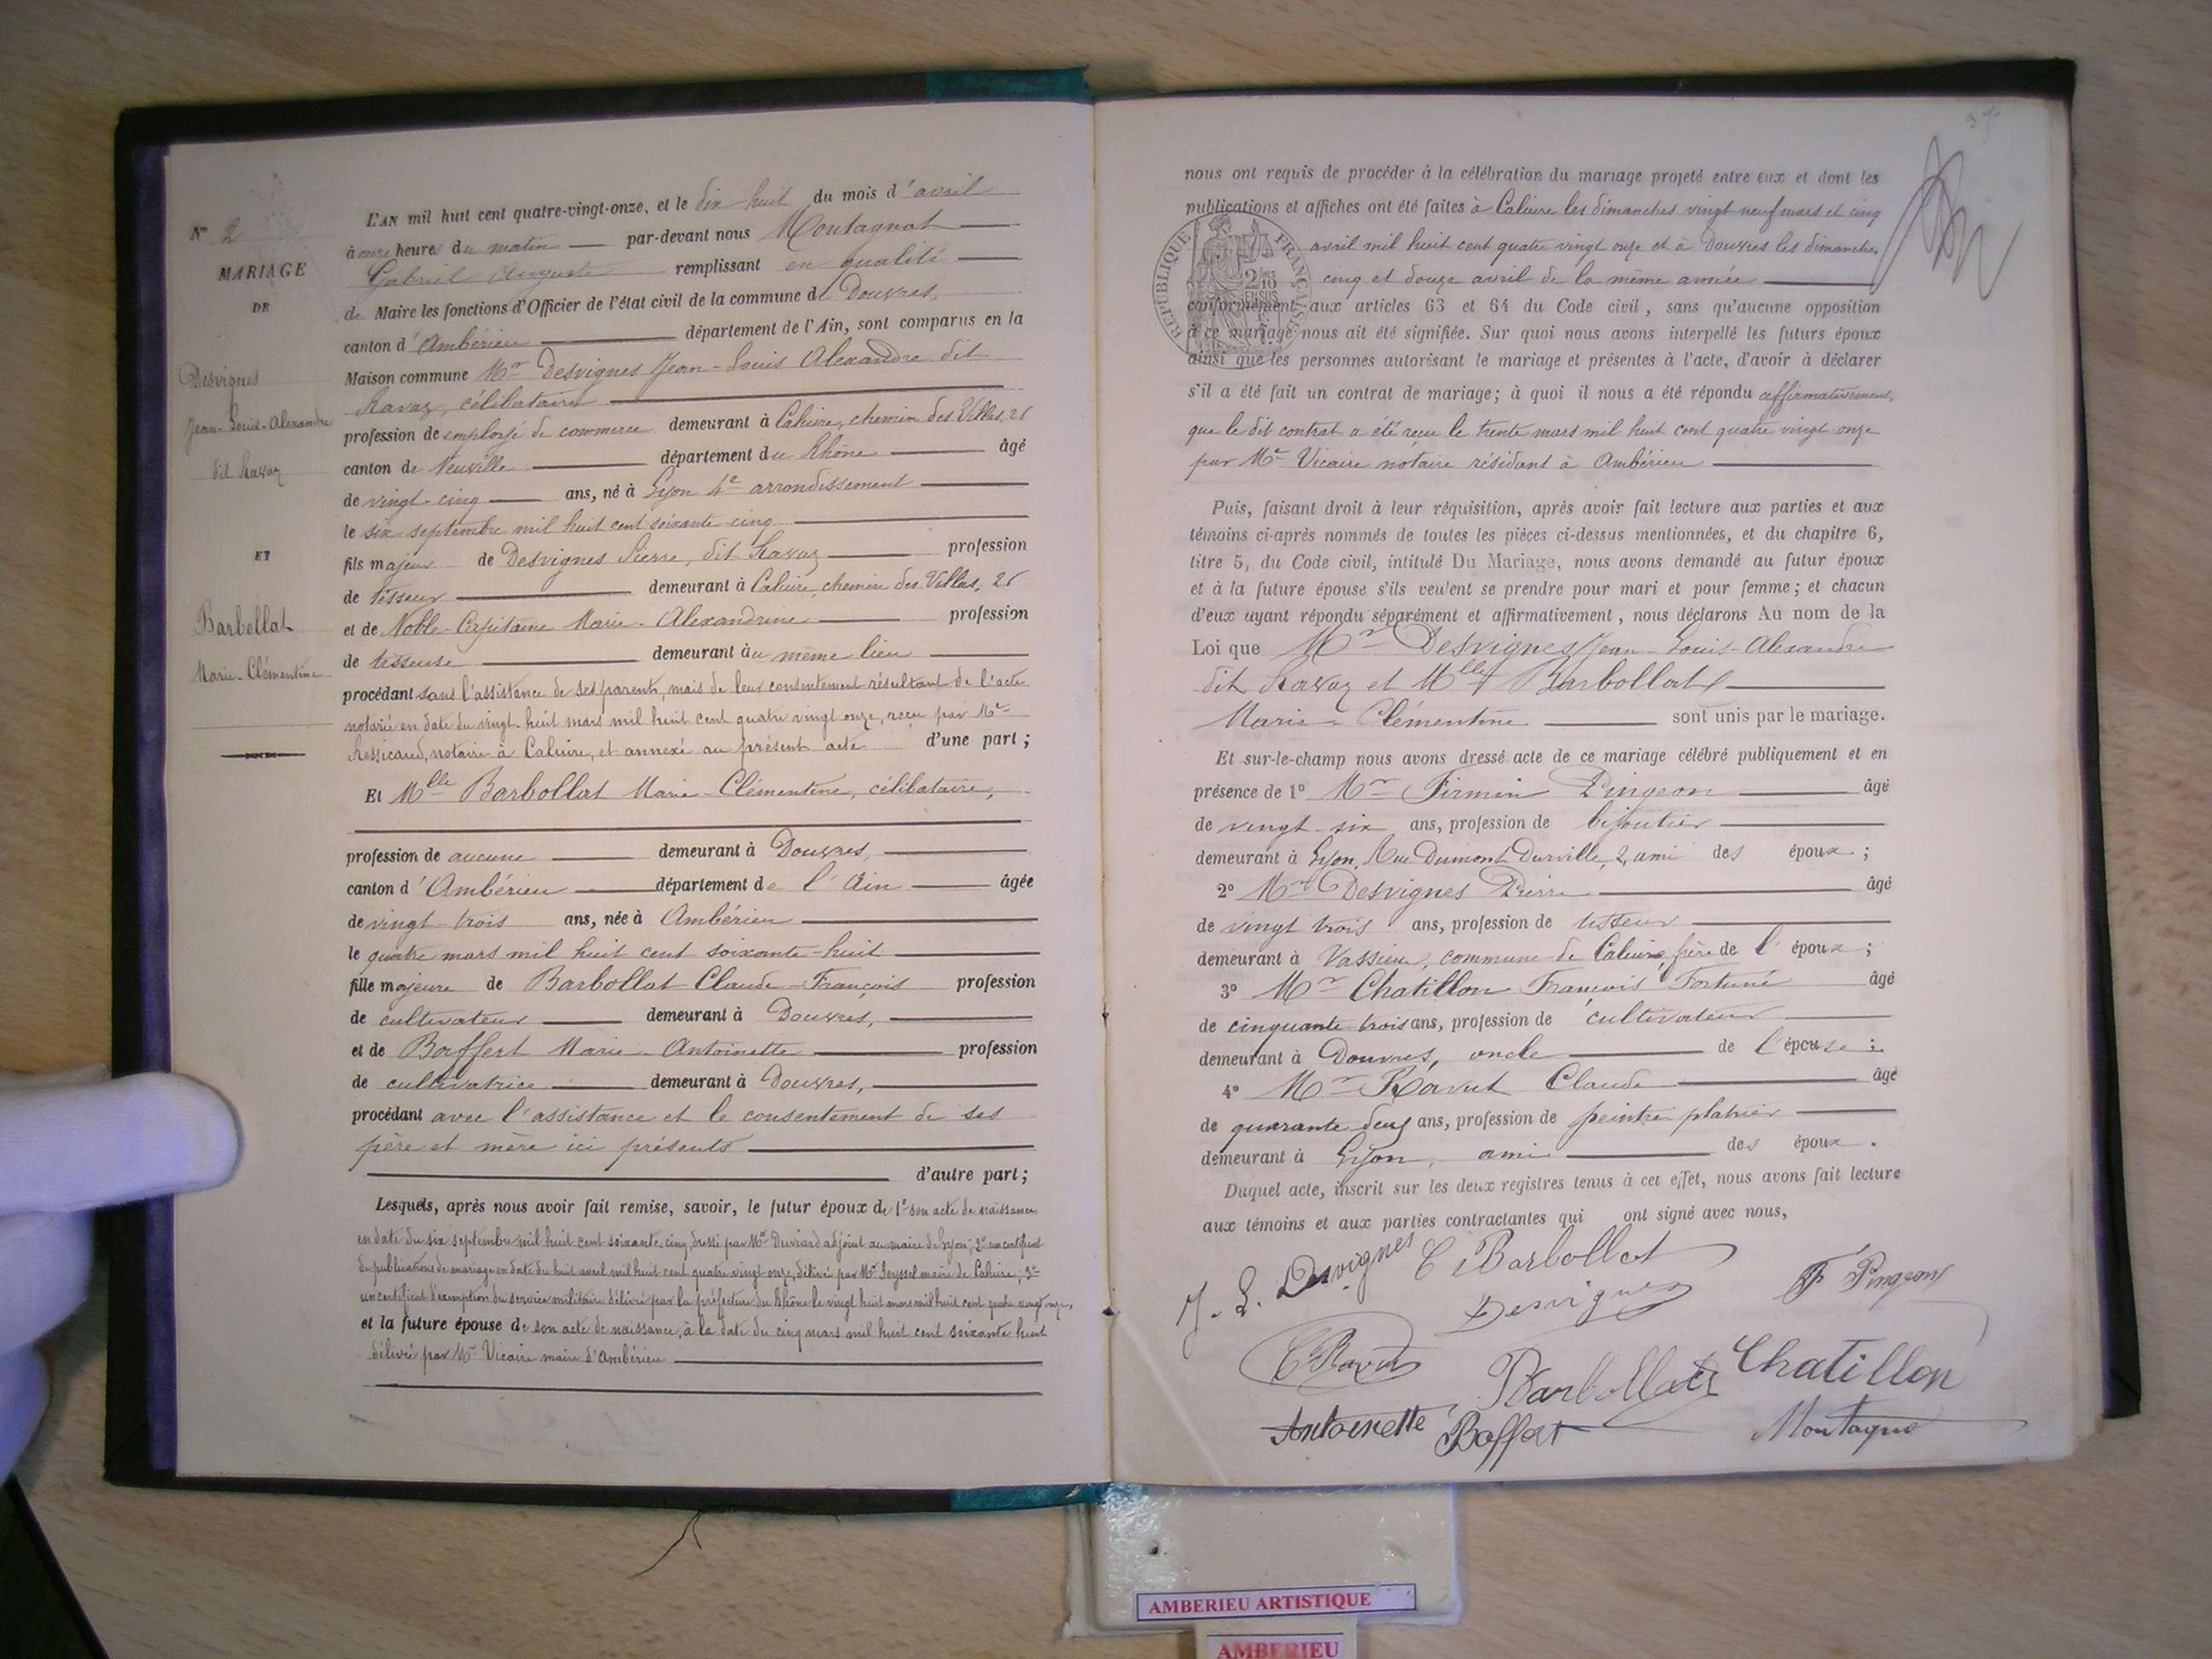 N° 2
MARIAGE
DE
Desvignes
Jean-Louis-Alexandre
dit Ravaz
ET
Barbollat
Marie-Clémentine
L'AN mil huit cent quatre-vingt-onze, et le dix huit du mois d'avril
à onze heures du matin par-devant nous Montagnat
Gabriel Auguste remplissant en qualité
de Maire les fonctions d'Officier de l'état civil de la commune de Douvres,
canton d'Ambérieu département de l'Ain, sont comparus en la
Maison commune Mr Desvignes Jean-Louis Alexandre dit
Ravaz, célibataire
profession de employé de commerce demeurant à Caluire, chemin des Villas, 26
canton de Neuville département du Rhône âgé
de vingt-cinq ans, né à Lyon 4e arrondissement
le six septembre mil huit cent soixante-cinq
fils majeur de Desvignes Pierre, dit Ravaz profession
de tisseur demeurant à Caluire, chemin des Villas, 26
et de Noble-Capitaine Marie-Alexandrine profession
de tisseuse demeurant au même lieu
procédant sans l'assistance de ses parents, mais de leur consentement résultant de l'acte
notarié en date du vingt-huit mars mil huit cent quatre vingt onze, reçu par Me
notaire à Caluire, et annexé au présent acte d'une part ;
Et Mlle Barbollat Marie-Clémentine, célibataire,
profession de aucune demeurant à Douvres,
canton d'Ambérieu département de l'Ain âgée
de vingt-trois ans, née à Ambérieu
le quatre mars mil huit cent soixante-huit
fille majeure de Barbollat Claude-François profession
de cultivateur demeurant à Douvres,
et de Boffert Marie-Antoinette profession
de cultivatrice demeurant à Douvres,
procédant avec l'assistance et le consentement de ses
père et mère ici présents
d'autre part ;
Lesquels, après nous avoir fait remise, savoir, le futur époux de 1° son acte de naissance
en date du six septembre mil huit cent soixante cinq, dressé par Mr adjoint au maire de Lyon ; 2° un certificat
de publications de mariage en date du huit avril mil huit cent quatre vingt onze, délivré par Mr maire de Caluire ; 3°
un certificat d'exemption du service militaire délivré par la préfecture du Rhône le vingt huit mars mil huit cent quatre vingt onze,
et la future épouse de son acte de naissance, à la date du cinq mars mil huit cent soixante huit
délivré par Mr Vicaire maire d'Ambérieu
nous ont requis de procéder à la célébration du mariage projeté entre eux et dont les
publications et affiches ont été faites à Caluire les dimanches vingt neuf mars et cinq
avril mil huit cent quatre vingt onze et à Douvres les dimanches
cinq et douze avril de la même année
conformément aux articles 63 et 64 du Code civil, sans qu'aucune opposition
à ce mariage nous ait été signifiée. Sur quoi nous avons interpellé les futurs époux
ainsi que les personnes autorisant le mariage et présentes à l'acte, d'avoir à déclarer
s'il a été fait un contrat de mariage ; à quoi il nous a été répondu affirmativement,
que le dit contrat a été reçu le trente mars mil huit cent quatre vingt onze
par Me Vicaire notaire résidant à Ambérieu
RÉPUBLIQUE FRANÇAISE
Puis, faisant droit à leur réquisition, après avoir fait lecture aux parties et aux
témoins ci-après nommés de toutes les pièces ci-dessus mentionnées, et du chapitre 6,
titre 5, du Code civil, intitulé Du Mariage, nous avons demandé au futur époux
et à la future épouse s'ils veulent se prendre pour mari et pour femme ; et chacun
d'eux ayant répondu séparément et affirmativement, nous déclarons Au nom de la
Loi que Mr Desvignes Jean-Louis-Alexandre
dit Ravaz et Mlle Barbollat
Marie-Clémentine sont unis par le mariage.
Et sur-le-champ nous avons dressé acte de ce mariage célébré publiquement et en
présence de 1° Mr Firmin Pingeon âgé
de vingt-six ans, profession de bijoutier
demeurant à Lyon, Rue Dumont Durville, 2, ami des époux ;
2° Mr Desvignes Pierre âgé
de vingt trois ans, profession de tisseur
demeurant à Vassieu, commune de Caluire, frère de l'époux ;
3° Mr Chatillon François Fortuné âgé
de cinquante trois ans, profession de cultivateur
demeurant à Douvres, oncle de l'épouse ;
4° Mr Ravut Claude âgé
de quarante-deux ans, profession de peintre plâtrier
demeurant à Lyon, ami des époux.
Duquel acte, inscrit sur les deux registres tenus à cet effet, nous avons fait lecture
aux témoins et aux parties contractantes qui ont signé avec nous,
J. L. Desvignes C Barbollat
Desvignes F Pingeon
C Ravut Barbollat Chatillon
Antoinette Boffert Montagnat
AMBERIEU ARTISTIQUE
AMBERIEU